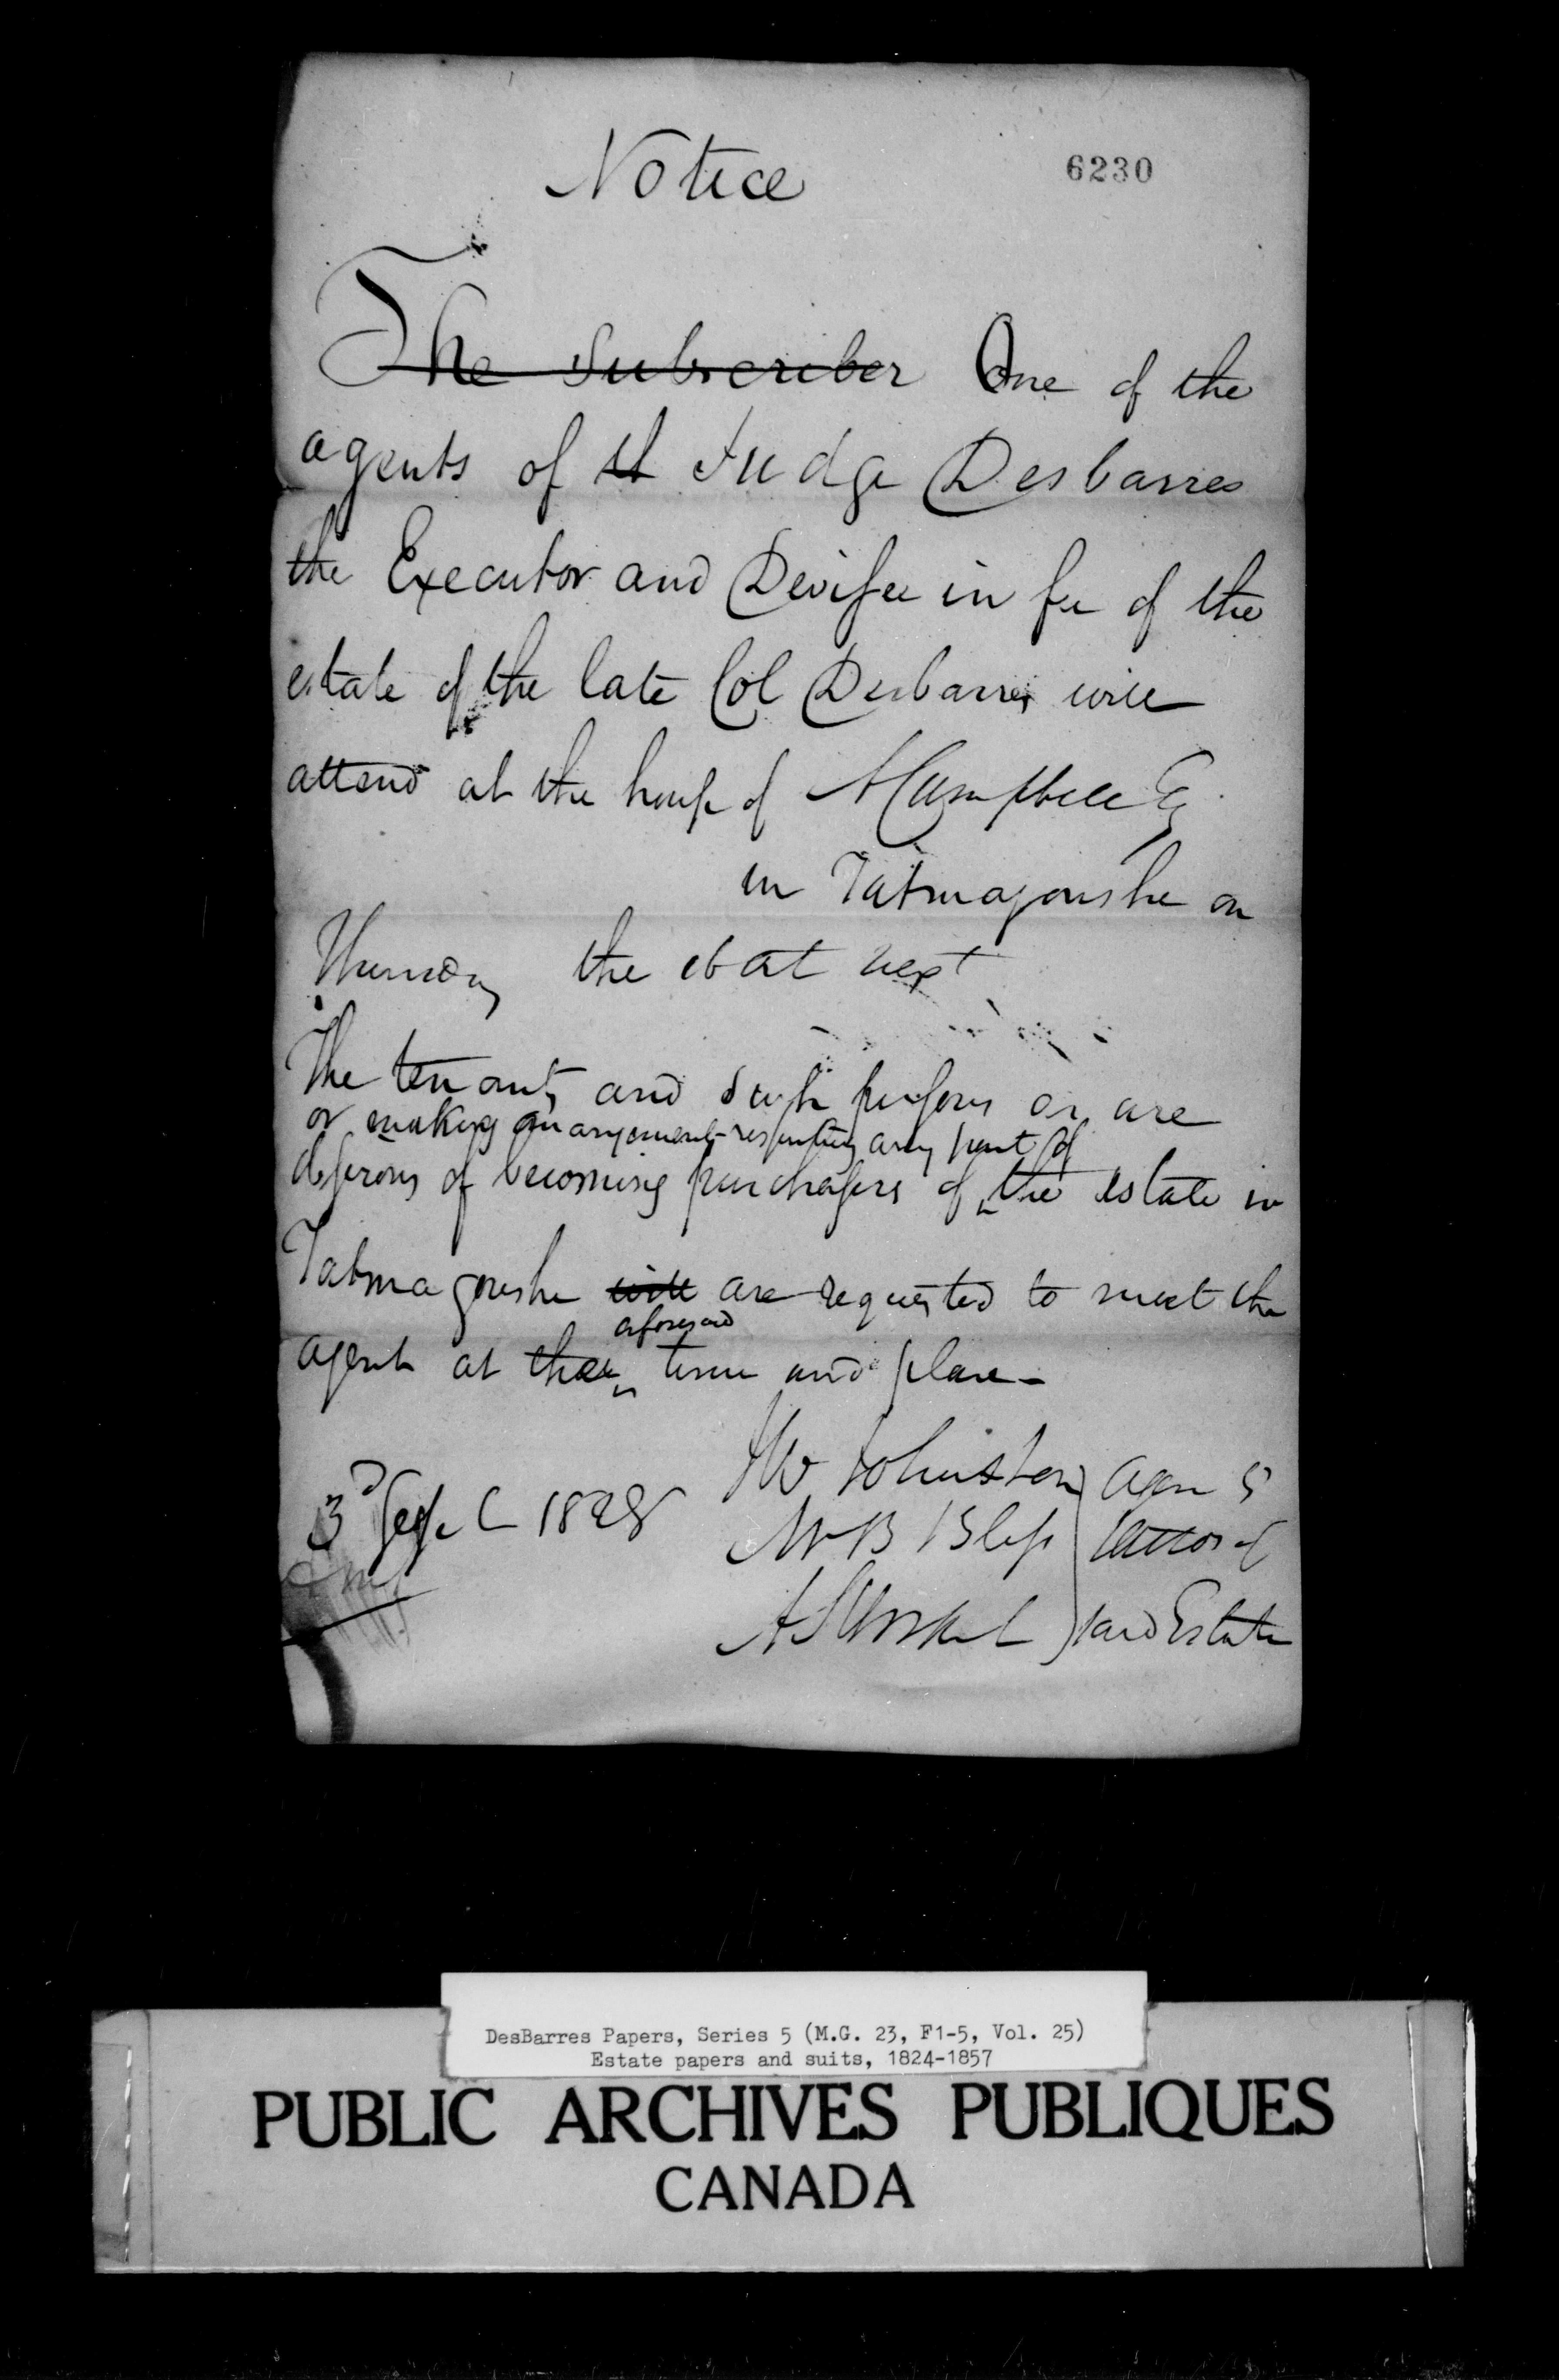 Notice
6230
The Subscriber One of the
agents of Judge Desbarres
the Executor and Devisee in fee of the
estate of the late Col Desbarres will
attend at the house of A Campbell Esq
in Tatmagoushe on
Thursday the next
The tenants and such persons as are
or making an arrangement respecting any part of
desirous of becoming purchasers of the estate in
Tatmagoushe will are requested to meet the
aforesaid
agents at time and place
JW Johnston Agen
3d Sept 1828
W B Bliss
said Estate
DesBarres Papers, Series 5 (M.G. 23, F1-5, Vol. 25)
Estate papers and suits, 1824-1857
PUBLIC ARCHIVES PUBLIQUES
CANADA